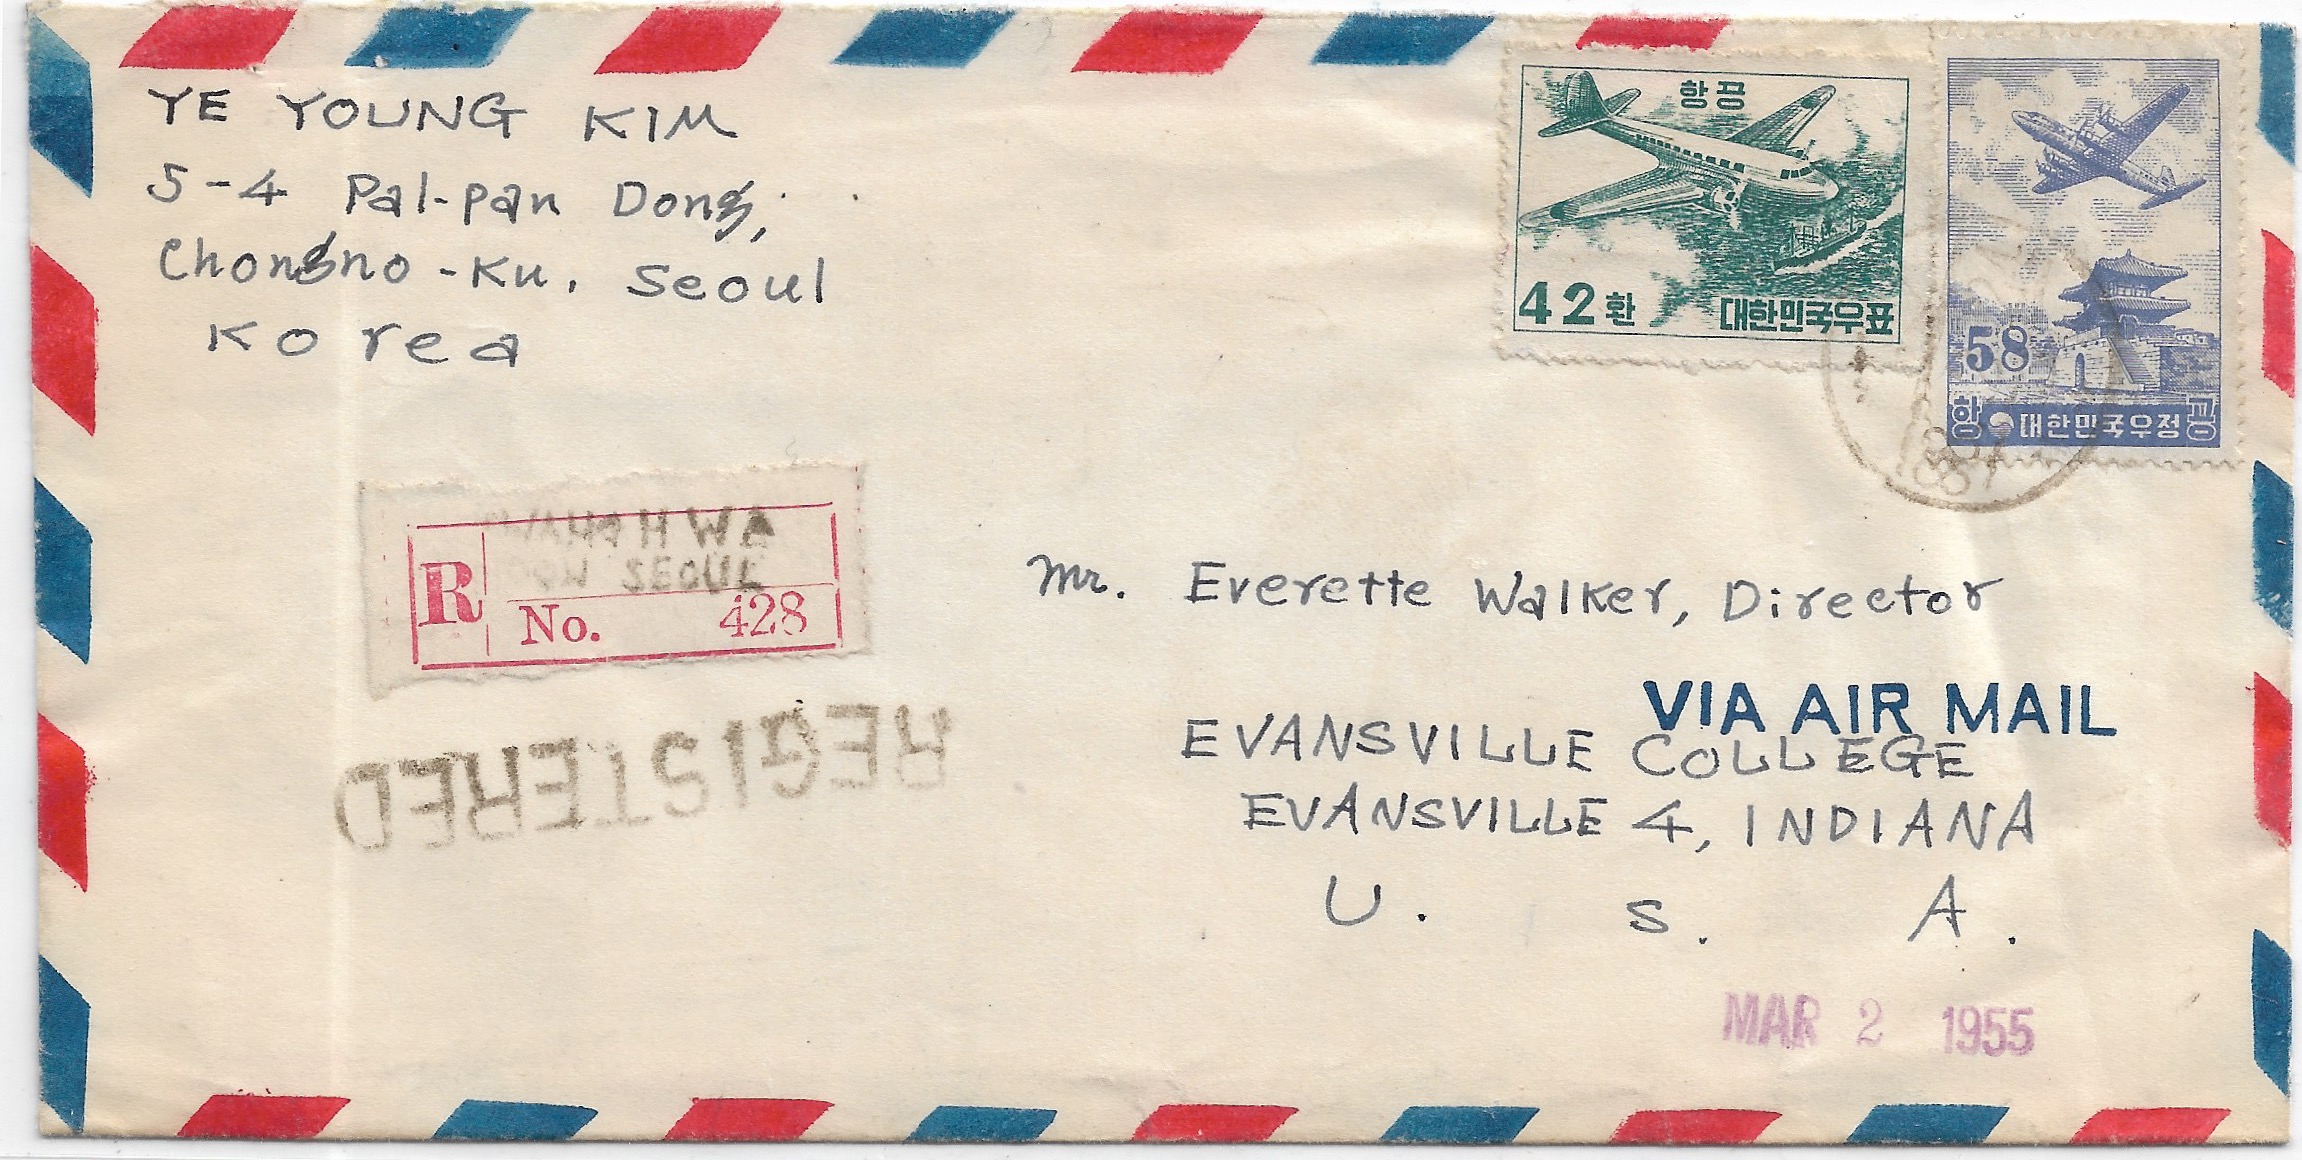 YE YOUNG KIM
5-4 Pal-pan Dong,
Chongno-Ku, Seoul
Korea
항공
42환
대한민국우표
58
항 대한민국우정 공
WAHWA
SEOUL
R
No. 428
REGISTERED
Mr. Everette Walker, Director
VIA AIR MAIL
EVANSVILLE COLLEGE
EVANSVILLE 4, INDIANA
U. S. A.
MAR 2 1955